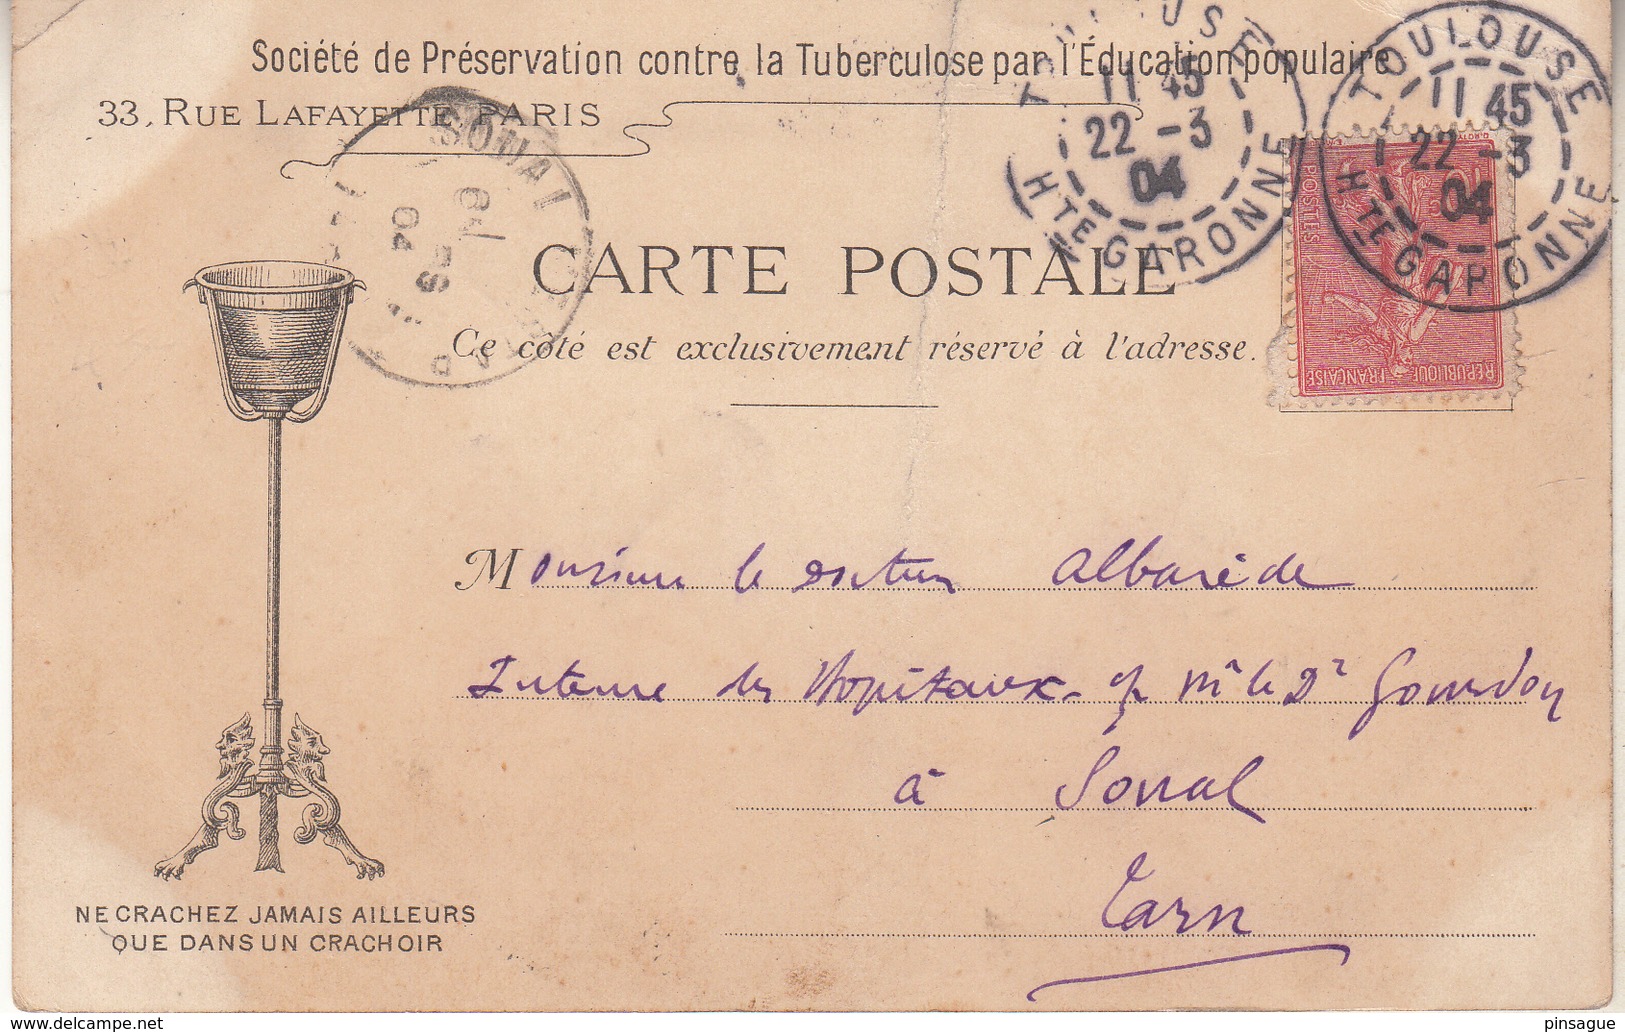 Société de Préservation contre la Tuberculose par l'Éducation populaire
33, RUE LAFAYETTE, PARIS
TOULOUSE
11 45
22 -3
04
HTE GARONNE
TOULOUSE
11 45
22 -3
04
HTE GARONNE
SOUAL
04
POSTES
RÉPUBLIQUE FRANÇAISE
CARTE POSTALE
Ce côté est exclusivement réservé à l'adresse.
Monsieur le docteur Albarède
Interne des Hopitaux - Mr le Dr Gourdon
à Soual
Tarn
NE CRACHEZ JAMAIS AILLEURS
QUE DANS UN CRACHOIR
www.delcampe.net
pinsague